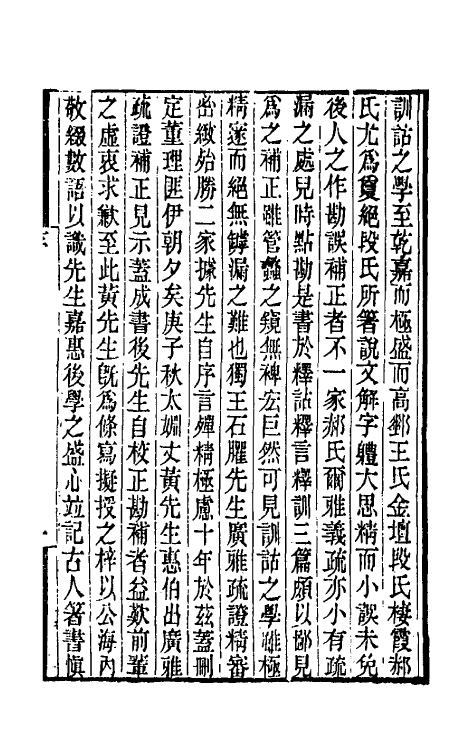 訓詁之學至乾嘉而極盛而高郵王氏金壇段氏棲霞郝
氏尤爲夐絕段氏所箸說文解字軆大思精而小誤未免
後人之作勘誤補正者不一家郝氏爾雅義疏亦小有疏
漏之處兒時點勘是書於釋詁釋言釋訓三篇頗以鄙見
爲之補正雖管蠡之窺無裨宏巨然可見訓詁之學雖極
精邃而絕無罅漏之難也獨王石臞先生廣雅疏證精審
密緻殆勝二家據先生自序言殫精極慮十年於茲蓋刪
定董理匪伊朝夕矣庚子秋太姻丈黃先生惠伯出廣雅
疏證補正見示蓋成書後先生自校正勘補者益歎前輩
之虛衷求䊷至此黃先生旣爲條寫擬授之梓以公海內
敬綴數語以識先生嘉惠後學之盛心竝記古人箸書愼